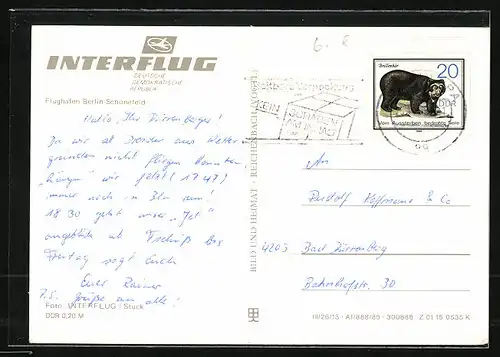 INTERFLUG
DEUTSCHE
DEMOKRATISCHE
REPUBLIK
Flughafen Berlin-Schönefeld
Hallo, Ihr Dürrenberger!
Da wir ab Dresden aus Wetter-
gründen nicht fliegen konnten,
"hängen" wir jetzt (17.47)
immer noch in Bln rum!
18.30 geht unser "Jet"
angeblich ab. Tschüß bis
Freitag sagt Euch
Euer Rainer
P.S. Grüße an alle!
Foto: INTERFLUG / Stuck
DDR 0,20 M
BILD UND HEIMAT · REICHENBACH
6.
Brillenbär
20
DDR
Vom Aussterben bedrohte Tiere
KEIN
An
Rudolf Hoffmann & Co
4203 Bad Dürrenberg
Bahnhofstr. 30
III/26/13 · A1/888/85 · 300886 Z 01 15 0535 K